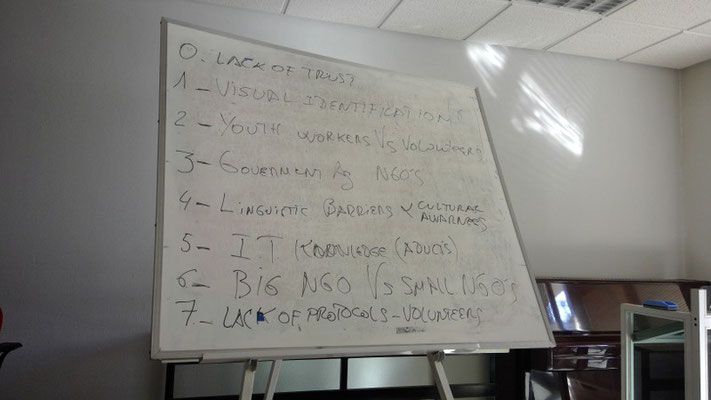 0. LACK OF TRUST
1 - VISUAL IDENTIFICATION
2 - YOUTH WORKERS VS VOLUNTEERS
3 - GOVERNMENT NGO'S
4 - LINGUISTIC BARRIERS & CULTURAL
AWARNESS
5 - IT KNOWLEDGE (ADULTS)
6 - BIG NGO VS SMALL NGO'S
7 - LACK OF PROTOCOLS - VOLUNTEERS